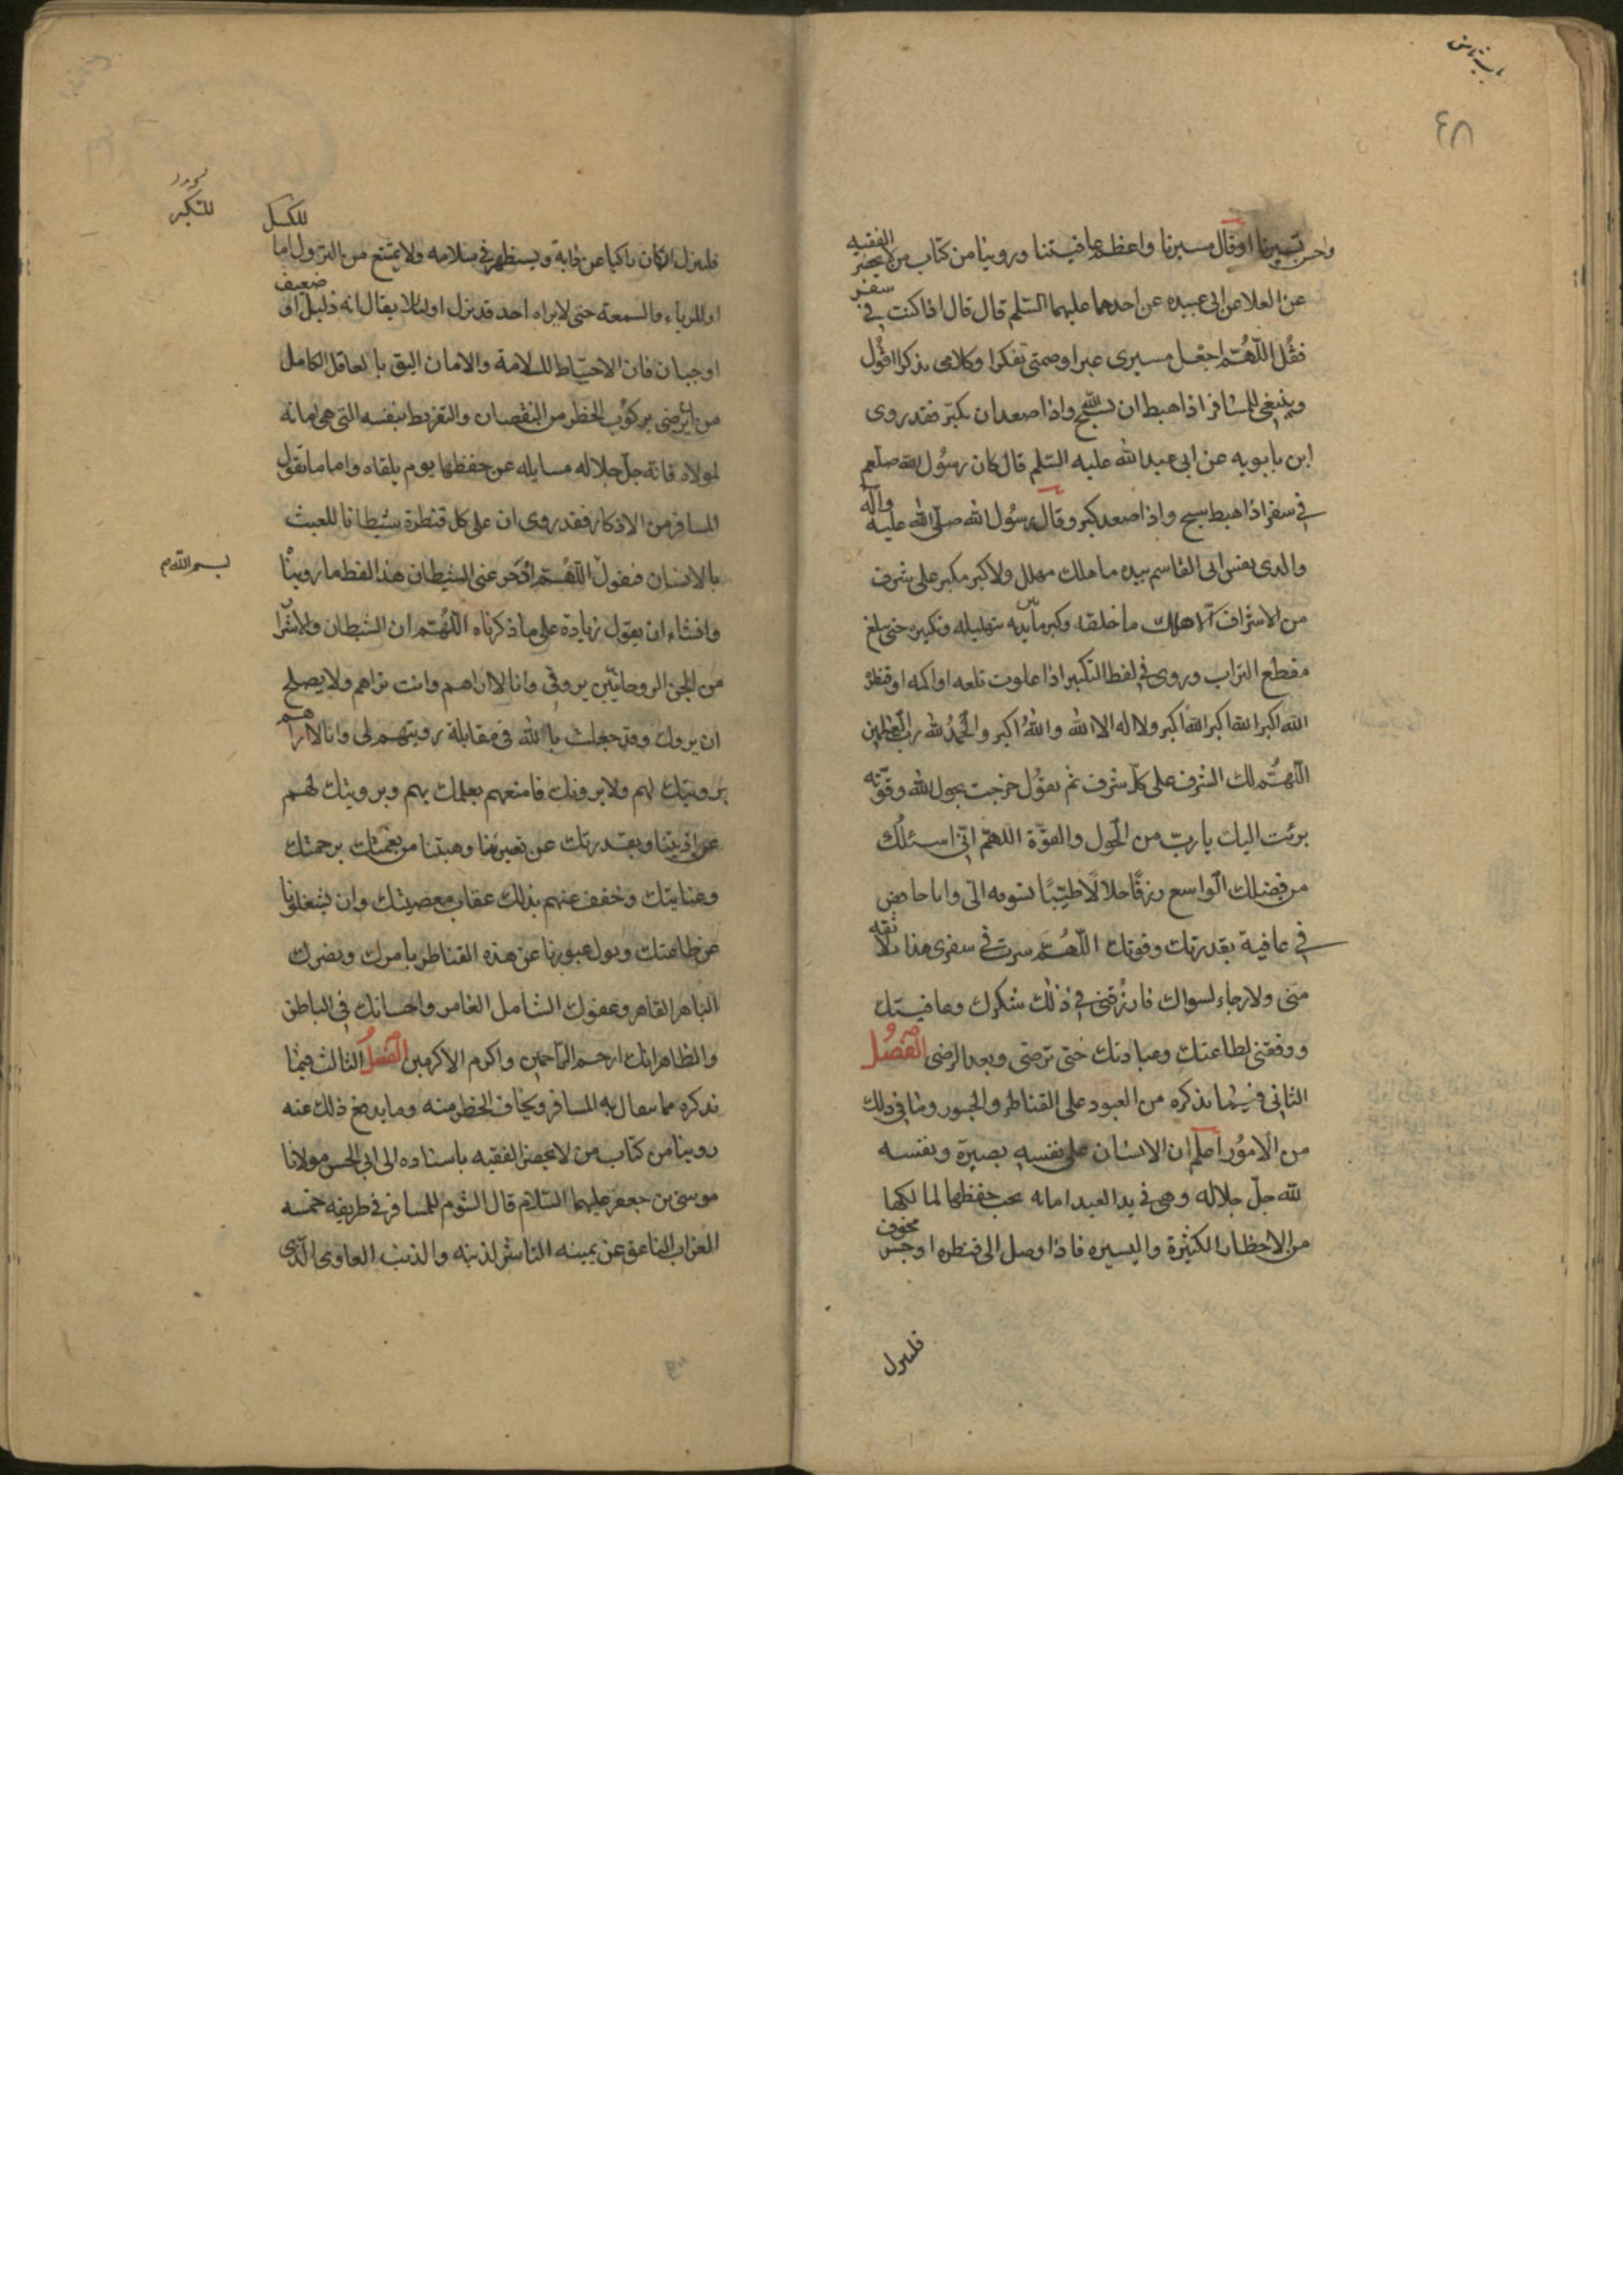 ٤٨
واحسن تسيرنا او قال مسيرنا واعظم عافيتنا وروينا من كتاب من لا يحضر الفقيه
عن العلا عن ابى عبيده عن احدهما عليهما السّلم قال قال اذا كنت فى سفر
فقُل اللّهُمّ اجعل مسيرى عبرا وصمتى تفكرا وكلامى بذكرا اقول
وينبغى للمسافر اذا هبط ان يسبّح اللّه واذا صعد ان يكبّر فقد روى
ابن بابويه عن ابى عبد الله عليه السّلم قال كان رسُول الله صلّعم
فى سفر اذا هبط سبح واذا صعد كبر وقال رسُول الله صلّى الله عليه وآله
والذى نفس ابى القاسم بيده ما هلك مهلل ولا كبر مكبر على شرف
من الاشراف الّا هلل ما خلقه وكبر ما بين يديه بتهليله وتكبيره حتى يبلغ
مقطع التراب وروى فى لفظ التكبير اذا علوت تلعه او اكمه او قنطرة
الله اكبر الله اكبر الله اكبر ولا اله الا الله والله اكبر والحمدُ لله ربّ العالمين
اللّهُمّ لك الشرف على كلّ شرف ثم يقوُل خرجت بحول الله وقوّته
برئت اليك يا ربّ من الحول والقوّة اللّهمّ انّى اسئلُك
من فضلك الواسع رزقًا حلالًا طيّبًا تسوقه الىّ وانا خافض
فى عافية بقدرتك وقوتك اللّهُمّ سرت فى سفرى هذا بلا ثقه
منى ولا رجاء لسواك فارزُقنى فى ذلك شكرك وعافيتك
ووفقنى لطاعتك وعبادتك حتى ترضى وبعد الرضى الفصُل
الثانى فيما نذكره من العبور على القناطر والجسور وما فى ذلك
من الامُور اعلم ان الانسان على نفسه بصيرة ونفسه
للّه جلّ جلاله وهى فى يد العبد امانه يجب حفظها لمالكها
من الاخطار الكثيرة واليسيره فاذا وصل الى قنطره او جسر مخوف
فلينزل
فلينزل ان كان راكبا عن دابة ويستظهر فى سلامه ولا يمتنع من النزول اما للكسل
للتكبر
او للرياء والسمعة حتى لا يراه احد قد نزل او لئلا يقال انه ذليل او ضعيف
او جبان فان الاحتياط للسلامة والامان اليق بالعاقل الكامل
من ان يرضى بركوُب الخطر من النقصان والتفريط بنفسه التى هى امانة
لمولاه فانّه جلّ جلاله مسايله عن حفظها يوم يلقاه واما ما يقول
المسافر من الاذكار فقد روى ان على كل قنطرة شيطانا للعبث
بالانسان فيقول اللّهُمّ ادحر عنى الشيطان هذا لفظ ما رويناه
بسم الله
وان شاء ان يقول زيادة على ما ذكرناه اللّهُمّ ان الشيطان والاشرار
من الجن الروحانيّين يرونى وانا لا اراهم وانت تراهم ولا يصلح
ان يروك وقد جعلت يا اللّه فى مقابلة رويتهم لى وانا لا اراهم
برويتك لهم ولا يرونك فامنعهم بعلمك بهم وبرويتك لهم
عن اذيتنا وبقدرتك عن تغييرنا وهبتنا من نعمتك برحمتك
وعنايتك وخفف عنهم بذلك عقاب معصيتك وان يشغلونا
عن طاعتك وتول عبورنا عن هذه القناطر بامرك ونصرك
الباهر القاهر وعفوك الشامل الغامر واحسانك فى الباطن
والظاهر انك ارحم الراحمين واكرم الاكرمين الفصل الثالث فيما
نذكره مما يتفال به المسافر ويخاف الخطر منه وما يدفع ذلك عنه
روينا من كتاب من لا يحضر الفقيه باسناده الى ابى الحسن مولانا
موسى بن جعفر عليهما السّلام قال الشوم للمسافر فى طريقه خمسه
الغراب الناعق عن يمينه الناشر لذنبه والذئب العاوى الّذى